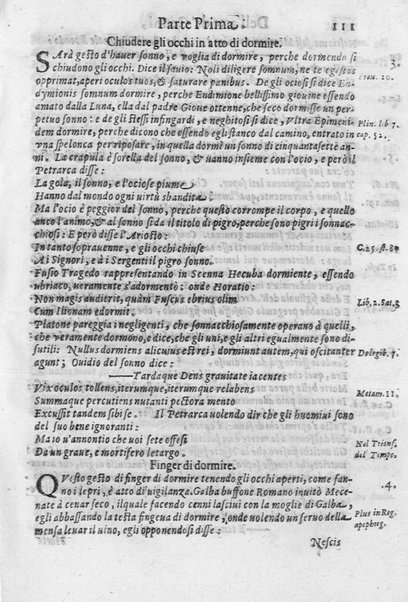 Parte Prima. 111
Chiudere gli occhi in atto di dormire.
SArà gesto d'hauer sonno, e uoglia di dormire, perche dormendo si 3.
chiudono gli occhi. Dice il sauio: Noli diligere somnum, ne te egestas
opprimat, aperi oculos tuos, & saturare panibus. De gli ociosi si dice En Prou. 20.
dymionis somnum dormire, perche Endimione bellissimo giouine essendo
amato dalla Luna, ella dal padre Gioue ottenne, che seco dormisse un per
petuo sonno: e de gli stessi infingardi, e neghitosi si dice, Vltra Epimeni Plin. lib. 7.
dem dormire, perche dicono che essendo egli stanco dal camino, entrato in cap. 52.
una spelonca per riposare, in quella dormì un sonno di cinquantasette an
ni. La crapula è sorella del sonno, & uanno insieme con l'ocio, e però il
Petrarca disse:
La gola, il sonno, e l'ociose piume
Hanno dal mondo ogni uirtù sbandita.
Ma l'ocio è peggior del sonno, perche questo corrompe il corpo, e quello
anco l'animo, & al sonno si dà il titolo di pigro, perche sono pigri i sonnac
chiosi: E però disse l'Ariosto:
In tanto soprauenne, e gli occhi chiuse C. 25. st. 80
Ai Signori, e à i Sergenti il pigro sonno.
Fusio Tragedo rappresentando in Scenna Hecuba dormiente, essendo
ubriaco, ueramente s'adormentò: onde Horatio:
Non magis audierit, quàm Fusius ebrius olim Lib. 2. Sat. 3
Cum Ilionam edormit.
Platone pareggia i negligenti, che sonnacchiosamente operano à quelli,
che ueramente dormono, e dice, che gli uni, e gli altri egualmente sono di-
sutili: Nullus dormiens alicuius est rei, dormiunt autem, qui oscitanter De legib. 7
agunt; Ouidio del sonno dice:
——Tardaque Deus grauitate iacentes
Vix oculos tollens, iterumque, iterumque relabens Metam. 11.
Summaque percutiens nutanti pectora mento
Excussit tandem sibi se. Il Petrarca uolendo dir che gli huomini sono
del suo bene ignoranti:
Ma io u'annontio che uoi sete offesi Nel Trionf.
Da un graue, e mortifero letargo. del Tempo.
Finger di dormire.
QVesto gesto di finger di dormire tenendo gli occhi aperti, come fan- 4.
no i lepri, è atto di uigilanza. Galba buffone Romano inuitò Mece
nate à cenar seco, il quale facendo cenni lasciui con la moglie di Galba,
egli abbassando la testa fingeua di dormire, onde uolendo un seruo della Plut. in Reg.
mensa leuar il uino, egli opponendosi disse: apopheg.
Nescis